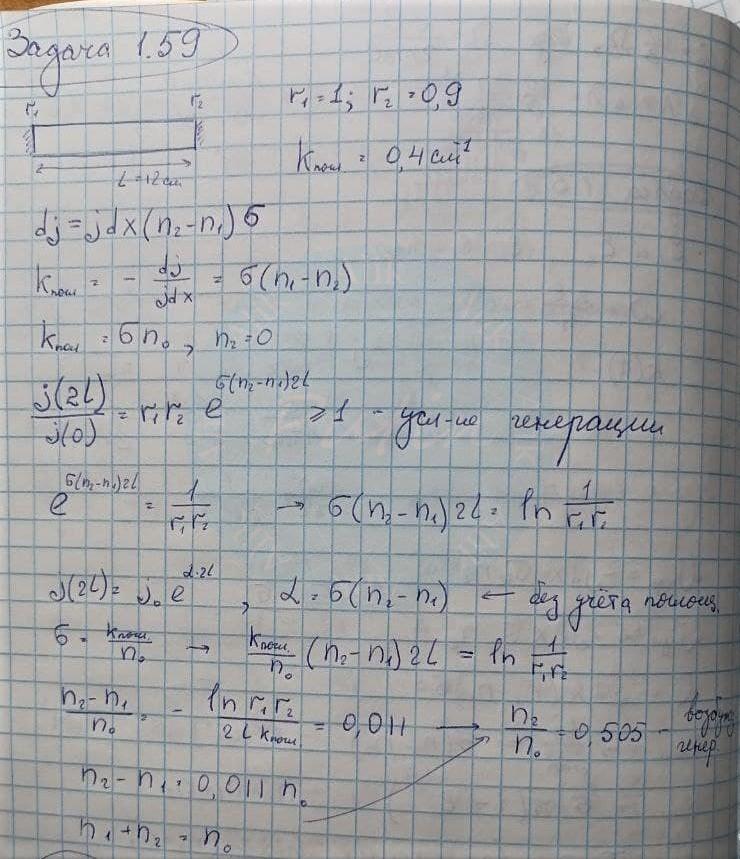 Задача 1.59
r₁ r₂
r₁ = 1; r₂ = 0,9
L = 12 см
kпогл = 0,4 см⁻¹
dj = jdx(n₂-n₁)σ
kпогл = - dj/jdx = σ(n₁-n₂)
kпогл = σn₀, n₂=0
j(2L)/j(0) = r₁r₂ e^σ(n₂-n₁)2L ≥ 1 - усл-ие генерации
e^σ(n₂-n₁)2L = 1/r₁r₂ → σ(n₂-n₁)2L = ln 1/r₁r₂
j(2L) = j₀ e^α·2L, α = σ(n₂-n₁) ← без учёта поглощ.
σ = kпогл./n₀ → kпогл./n₀ (n₂-n₁)2L = ln 1/r₁r₂
n₂-n₁/n₀ = - ln r₁r₂/2L kпогл = 0,011 → n₂/n₀ = 0,505 - возбужд
генер.
n₂-n₁ = 0,011 n₀
n₁+n₂ = n₀